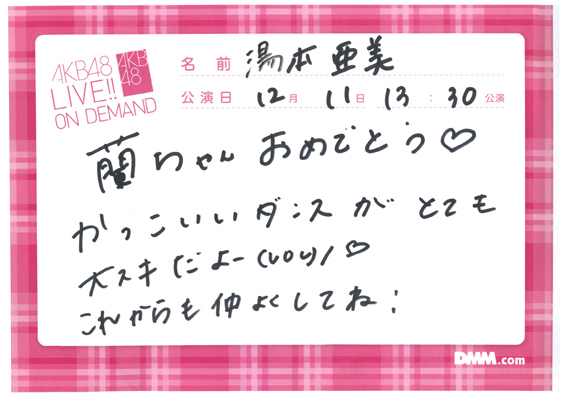 AKB48
LIVE!!
ON DEMAND
AKB
48
名前 湯本亜美
公演日 12月 11日 13:30公演
蘭ちゃん おめでとう♡
かっこいいダンスが とても
大スキだよー(^o^)/♡
これからも仲よくしてね!
DMM.com